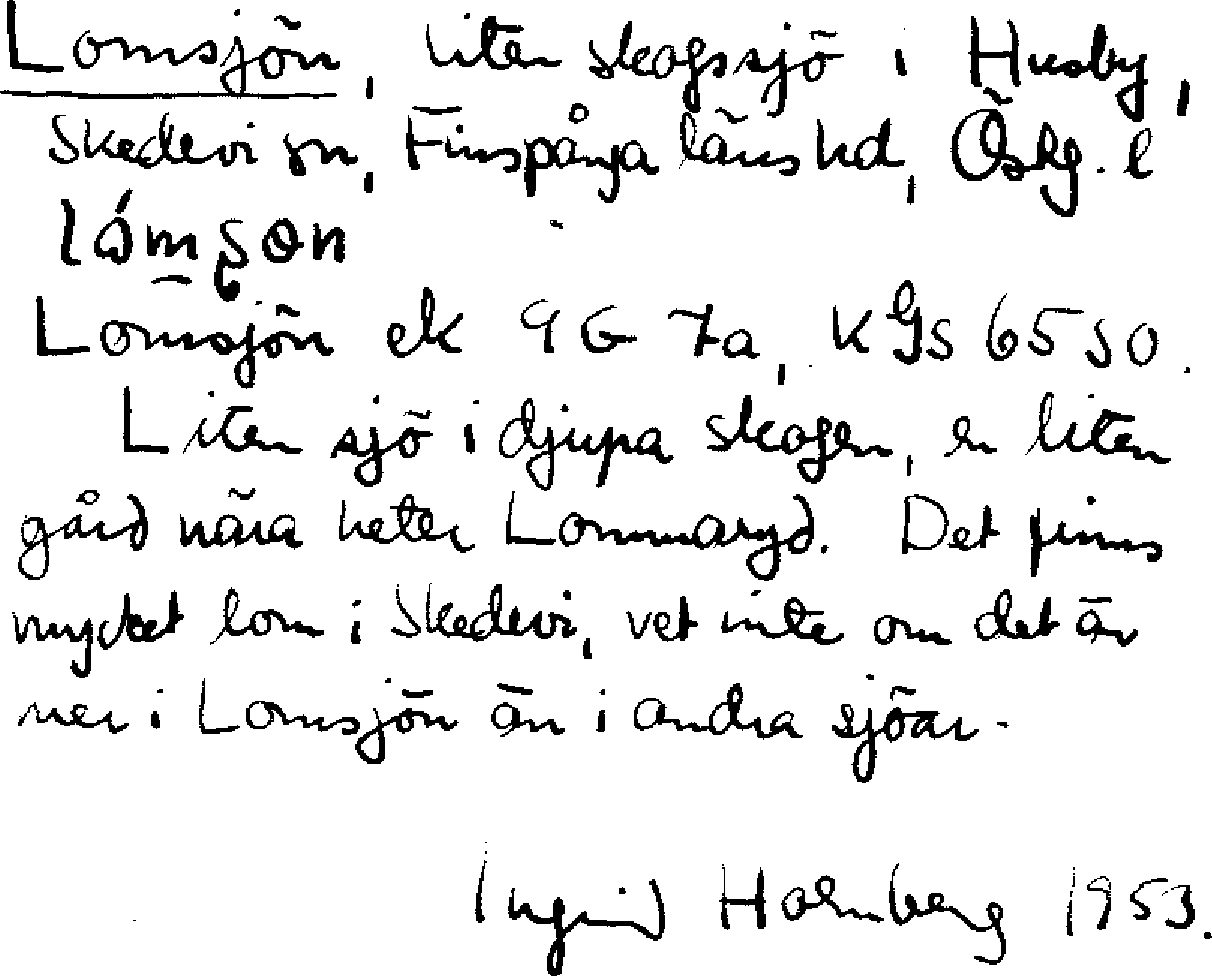 Lomsjön, liten skogssjö i Husby,
Skedevi sn, Finspånga läns hd, Östg. l
Lomsjön ek 9G 7a, KGs 6550.
Liten sjö i djupa skogen, en liten
gård nära heter Lommaryd. Det finns
mycket lom i Skedevi, vet inte om det är
mer i Lomsjön än i andra sjöar.
Ingrid Holmberg 1953.